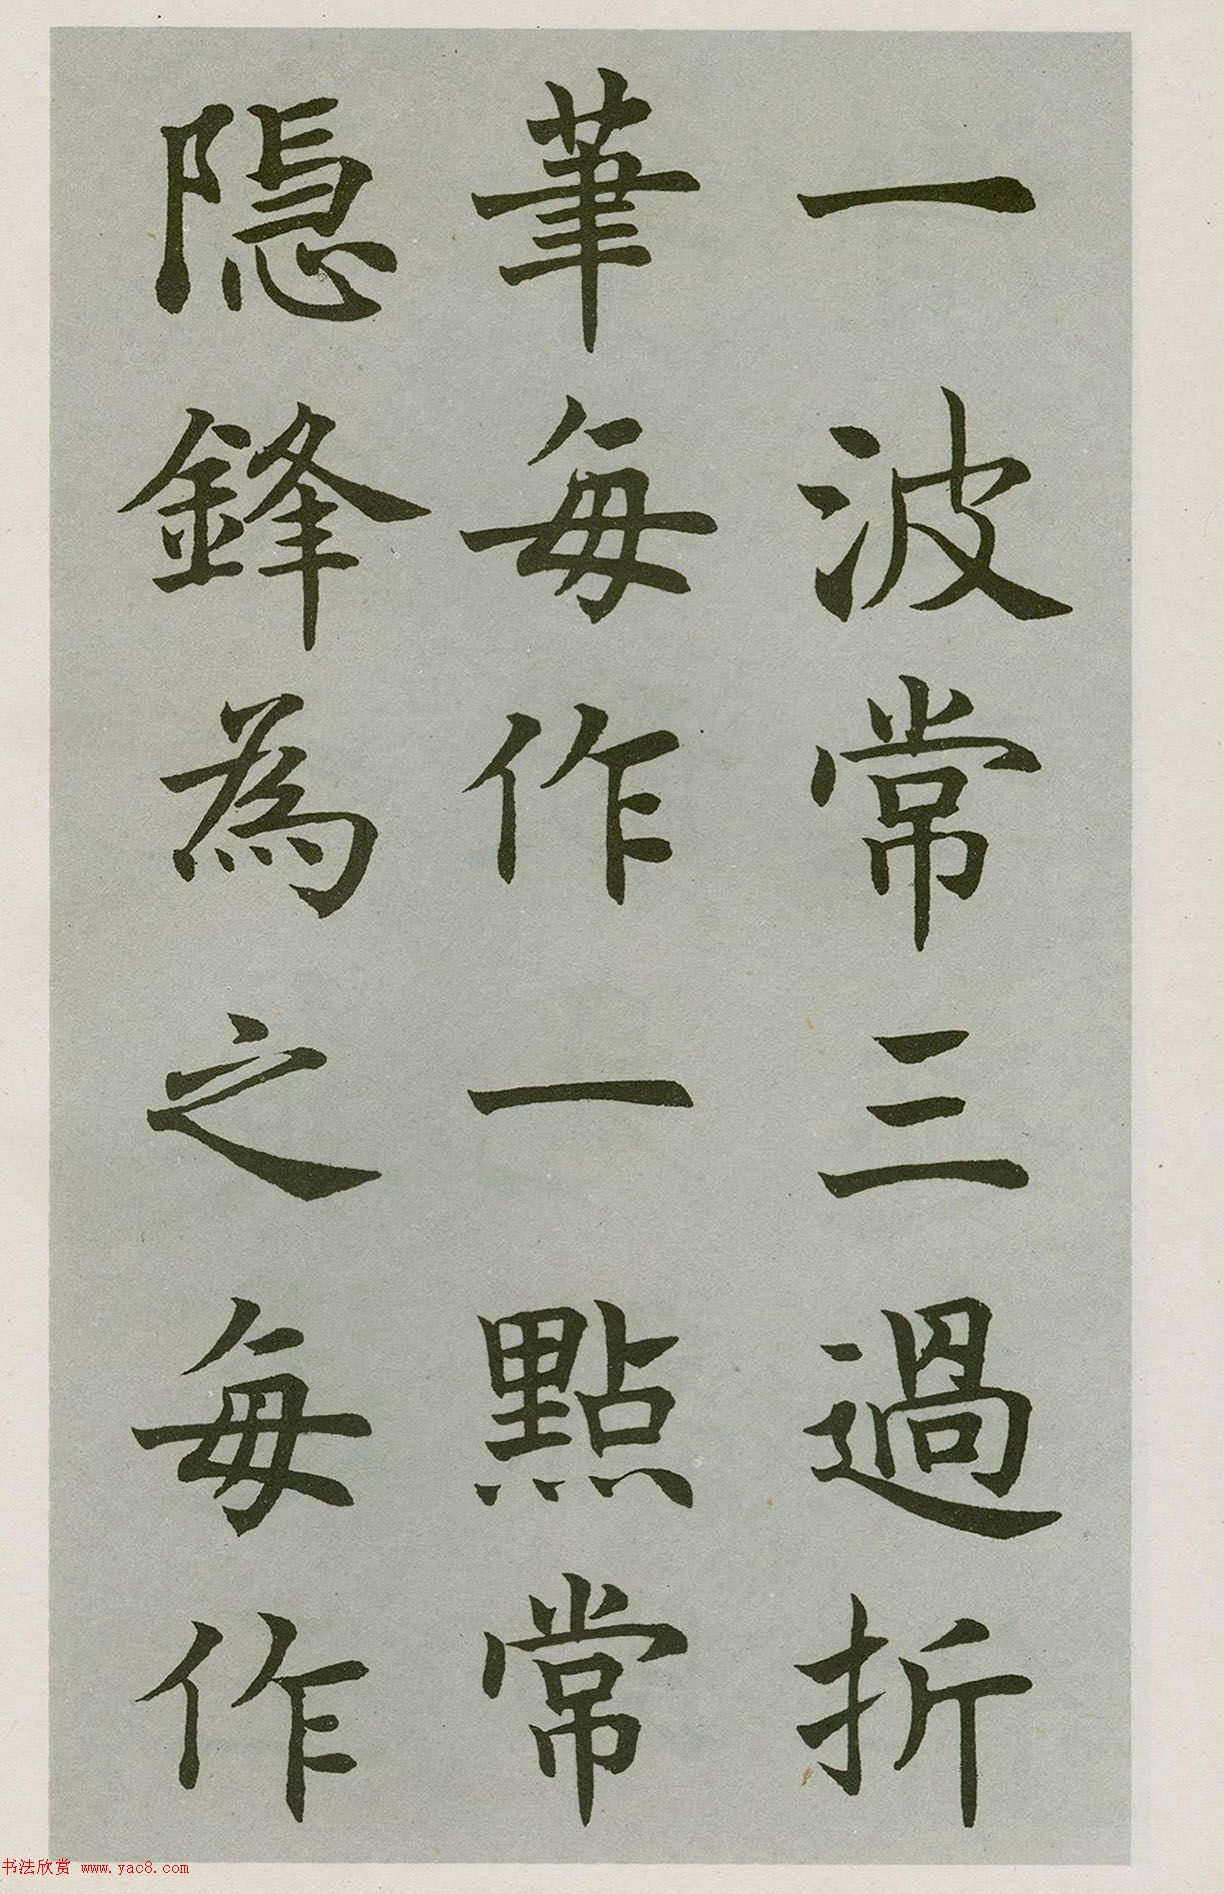 一波常三過折
筆每作一點常
隱鋒為之每作
书法欣赏 www.yac8.com